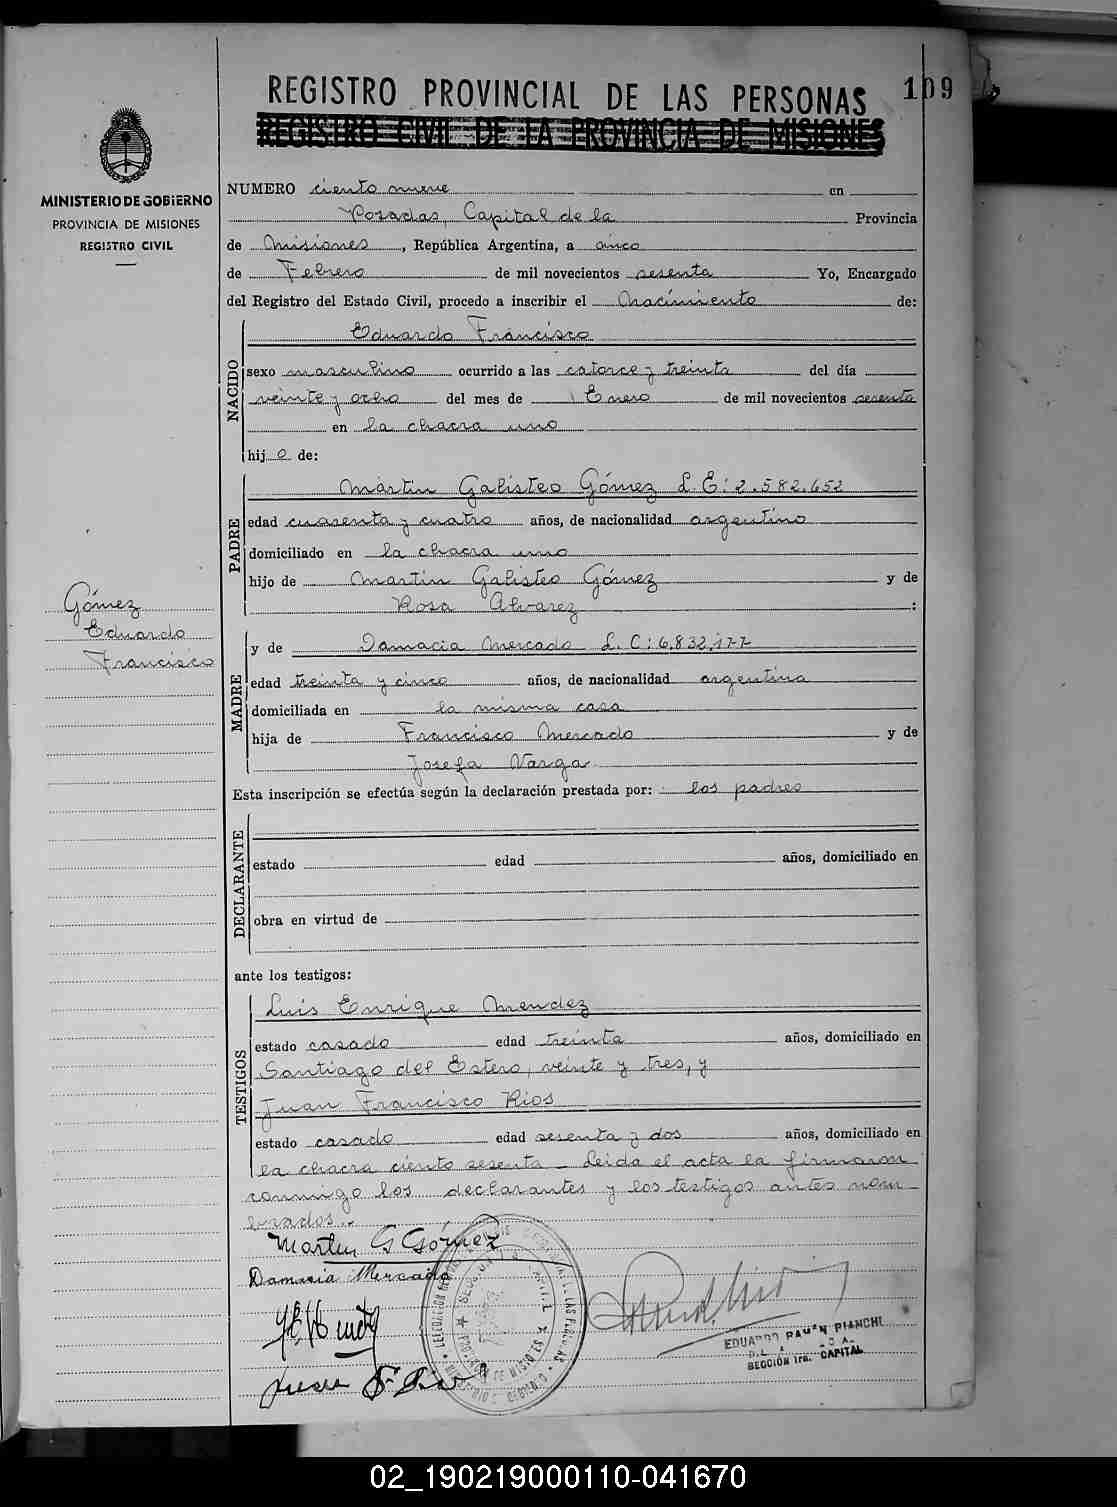 REGISTRO PROVINCIAL DE LAS PERSONAS
109
REGISTRO CIVIL DE LA PROVINCIA DE MISIONES
MINISTERIO DE GOBIERNO
PROVINCIA DE MISIONES
REGISTRO CIVIL
NUMERO ciento nueve en
Posadas, Capital de la Provincia
de Misiones, República Argentina, a cinco
de Febrero de mil novecientos sesenta Yo, Encargado
del Registro del Estado Civil, procedo a inscribir el Nacimiento de:
NACIDO
Eduardo Francisco
sexo masculino ocurrido a las catorce y treinta del día
veinte y ocho del mes de Enero de mil novecientos sesenta
en la chacra uno
hijo de:
PADRE
Martin Galisteo Gómez L.E: 2.582.652
edad cuarenta y cuatro años, de nacionalidad argentino
domiciliado en la chacra uno
hijo de Martin Galisteo Gómez y de
Rosa Alvarez :
Gómez
Eduardo
Francisco
MADRE
y de Damacia Mercado L.C: 6.832.177
edad treinta y cinco años, de nacionalidad argentina
domiciliada en la misma casa
hija de Francisco Mercado y de
Josefa Varga
Esta inscripción se efectúa según la declaración prestada por: los padres
DECLARANTE
estado edad años, domiciliado en
obra en virtud de
ante los testigos:
TESTIGOS
Luis Enrique Mendez
estado casado edad treinta años, domiciliado en
Santiago del Estero, veinte y tres, y
Juan Francisco Rios
estado casado edad sesenta y dos años, domiciliado en
la chacra ciento sesenta - Leida el acta la firmaron
conmigo los declarantes y los testigos antes nom-
brados.
Martin G Gómez
Damasia Mercado
EDUARDO RAMÓN BIANCHI
SECCIÓN 1ra. CAPITAL
02_190219000110-041670